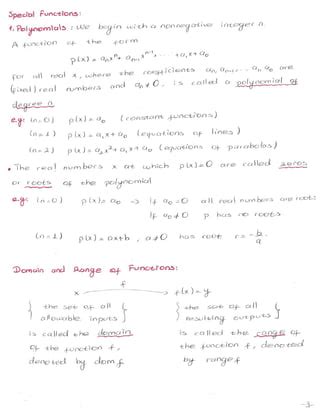 Special Functions:
1. Polynomials: We begin with a nonnegative integer n.
A function of the form
p(x) = aₙxⁿ + aₙ₋₁xⁿ⁻¹ + ... + a₁x + a₀
for all real x, where the coefficients aₙ, aₙ₋₁, ... a₁, a₀ are
(fixed) real numbers and aₙ ≠ 0. is called a polynomial of
degree n.
e.g: (n=0) p(x) = a₀ (constant functions)
(n=1) p(x) = a₁x + a₀ (equations of lines)
(n=2) p(x) = a₂x² + a₁x + a₀ (equations of parabolas)
• The real numbers x at which p(x)=0 are called zeros
or roots of the polynomial
e.g: (n=0) p(x) = a₀ → If a₀ = 0 all real numbers are roots
If a₀ ≠ 0 p has no roots.
(n=1) p(x) = ax+b, a≠0 has root r = -b/a.
Domain and Range of Functions:
f
x → f(x) = y
{ the set of all allowable inputs } { the set of all resulting outputs }
is called the domain is called the range of
of the function f, the function f, denoted
denoted by dom f by range f
-3-